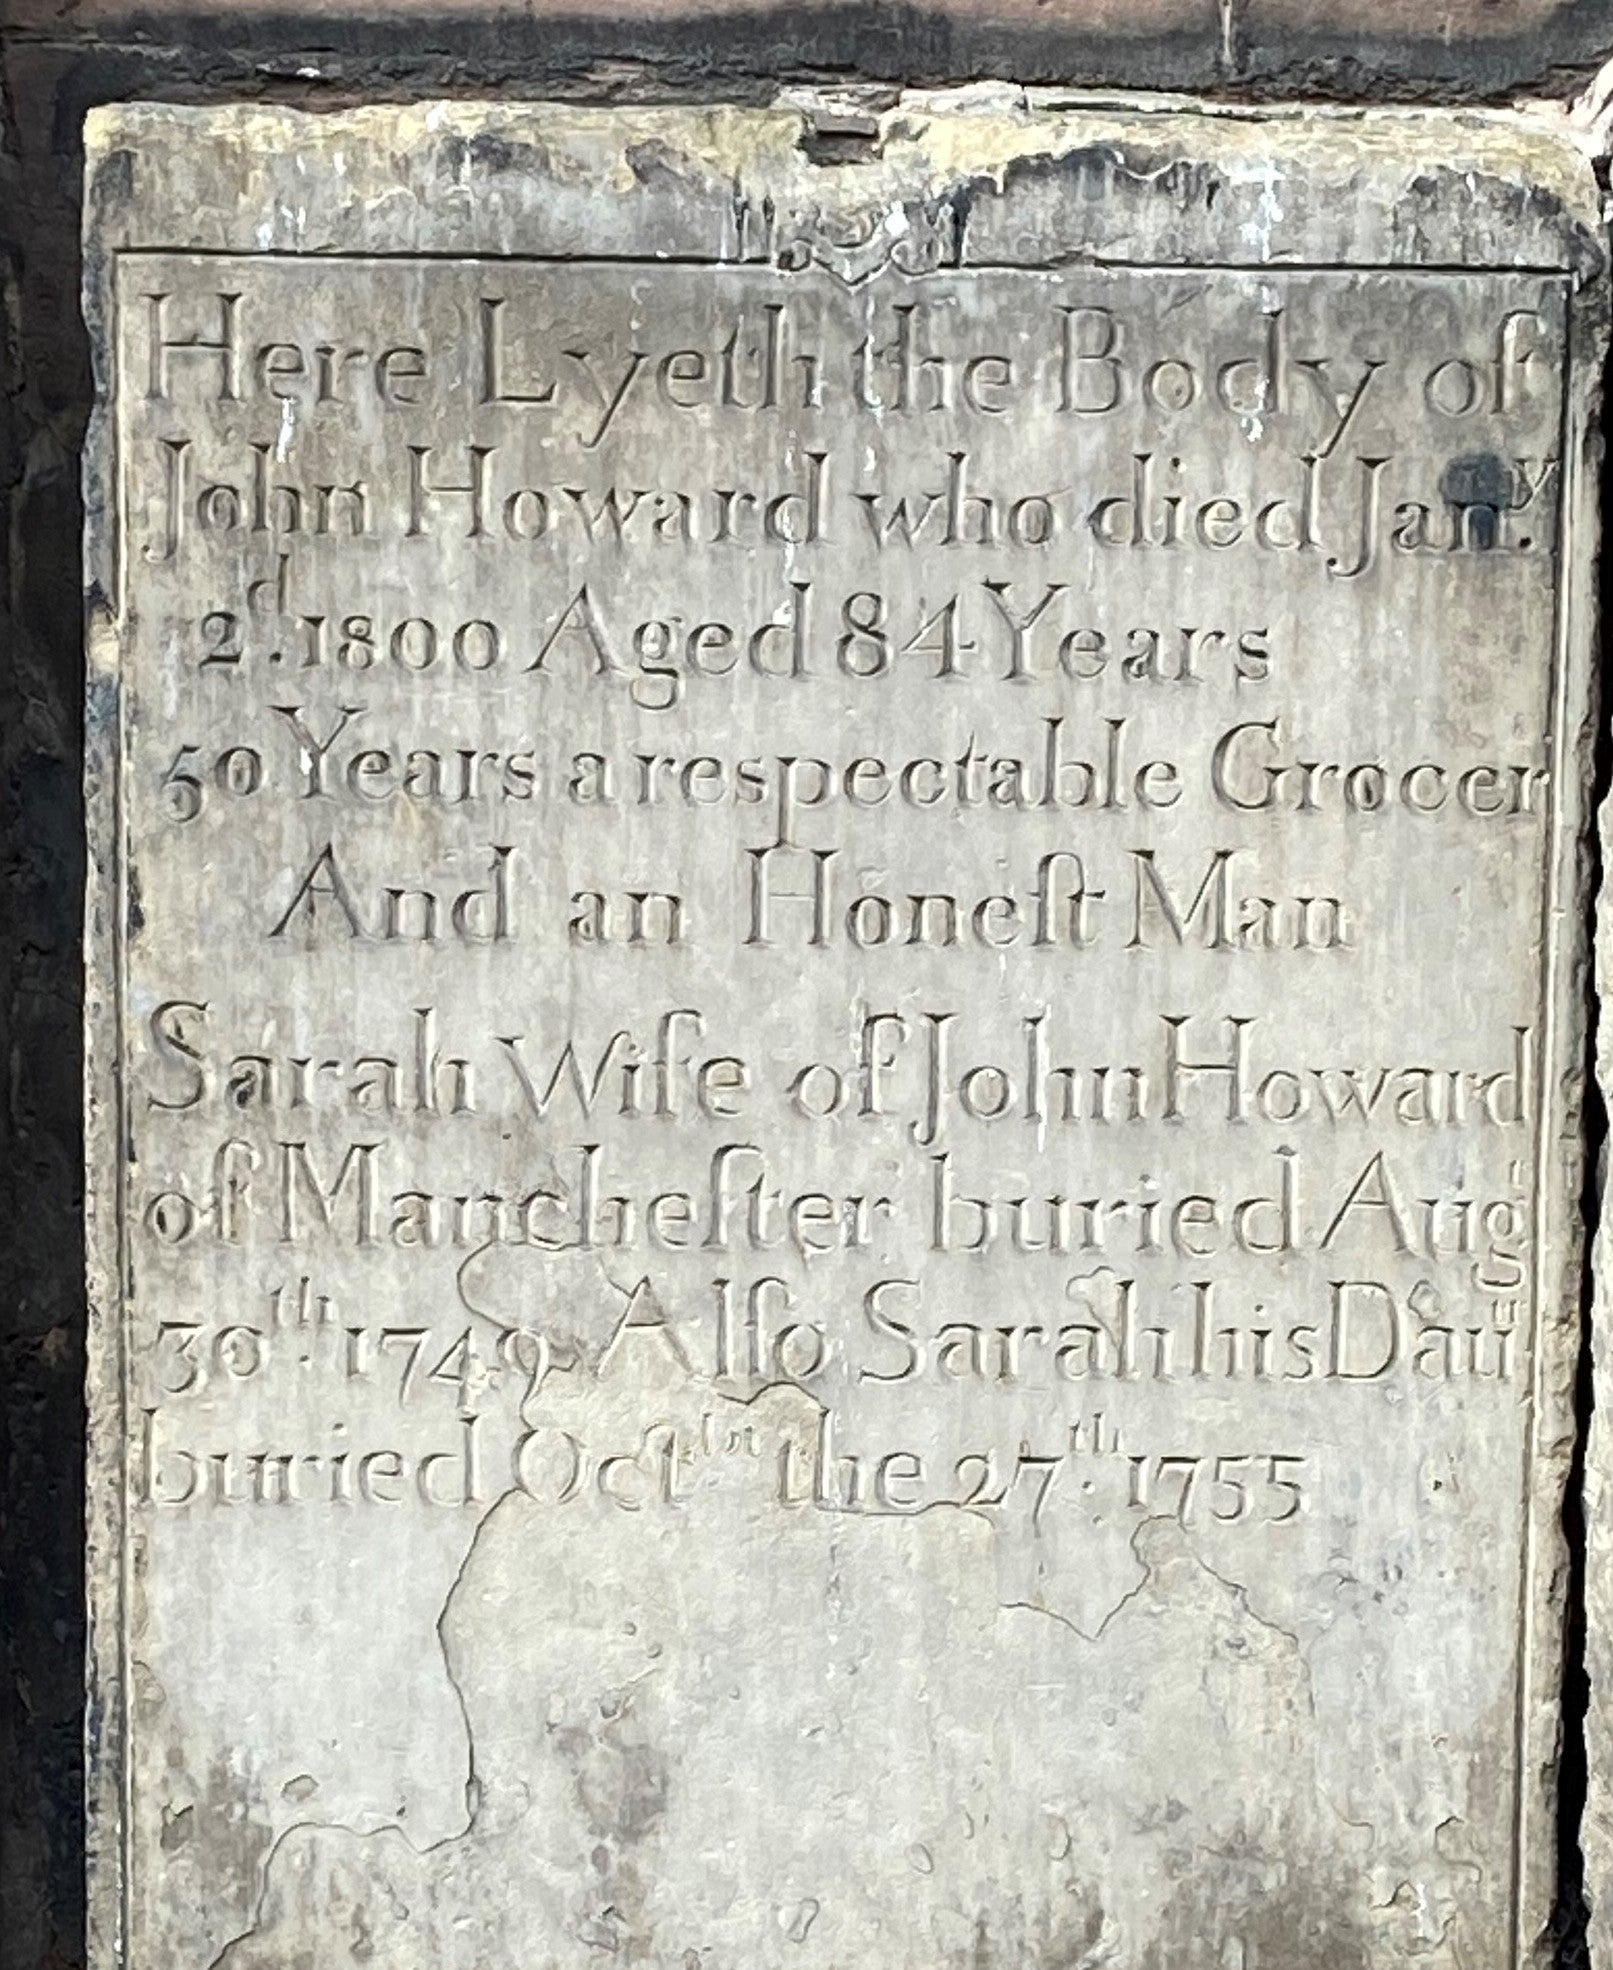 Here Lyeth the Body of
John Howard who died Jan.y
2d. 1800 Aged 84 Years
50 Years a respectable Grocer
And an Honeſt Man
Sarah Wife of John Howard
of Mancheſter buried Aug
30th. 1749 Alſo Sarah his Dau
buried Octbr the 27th. 1755